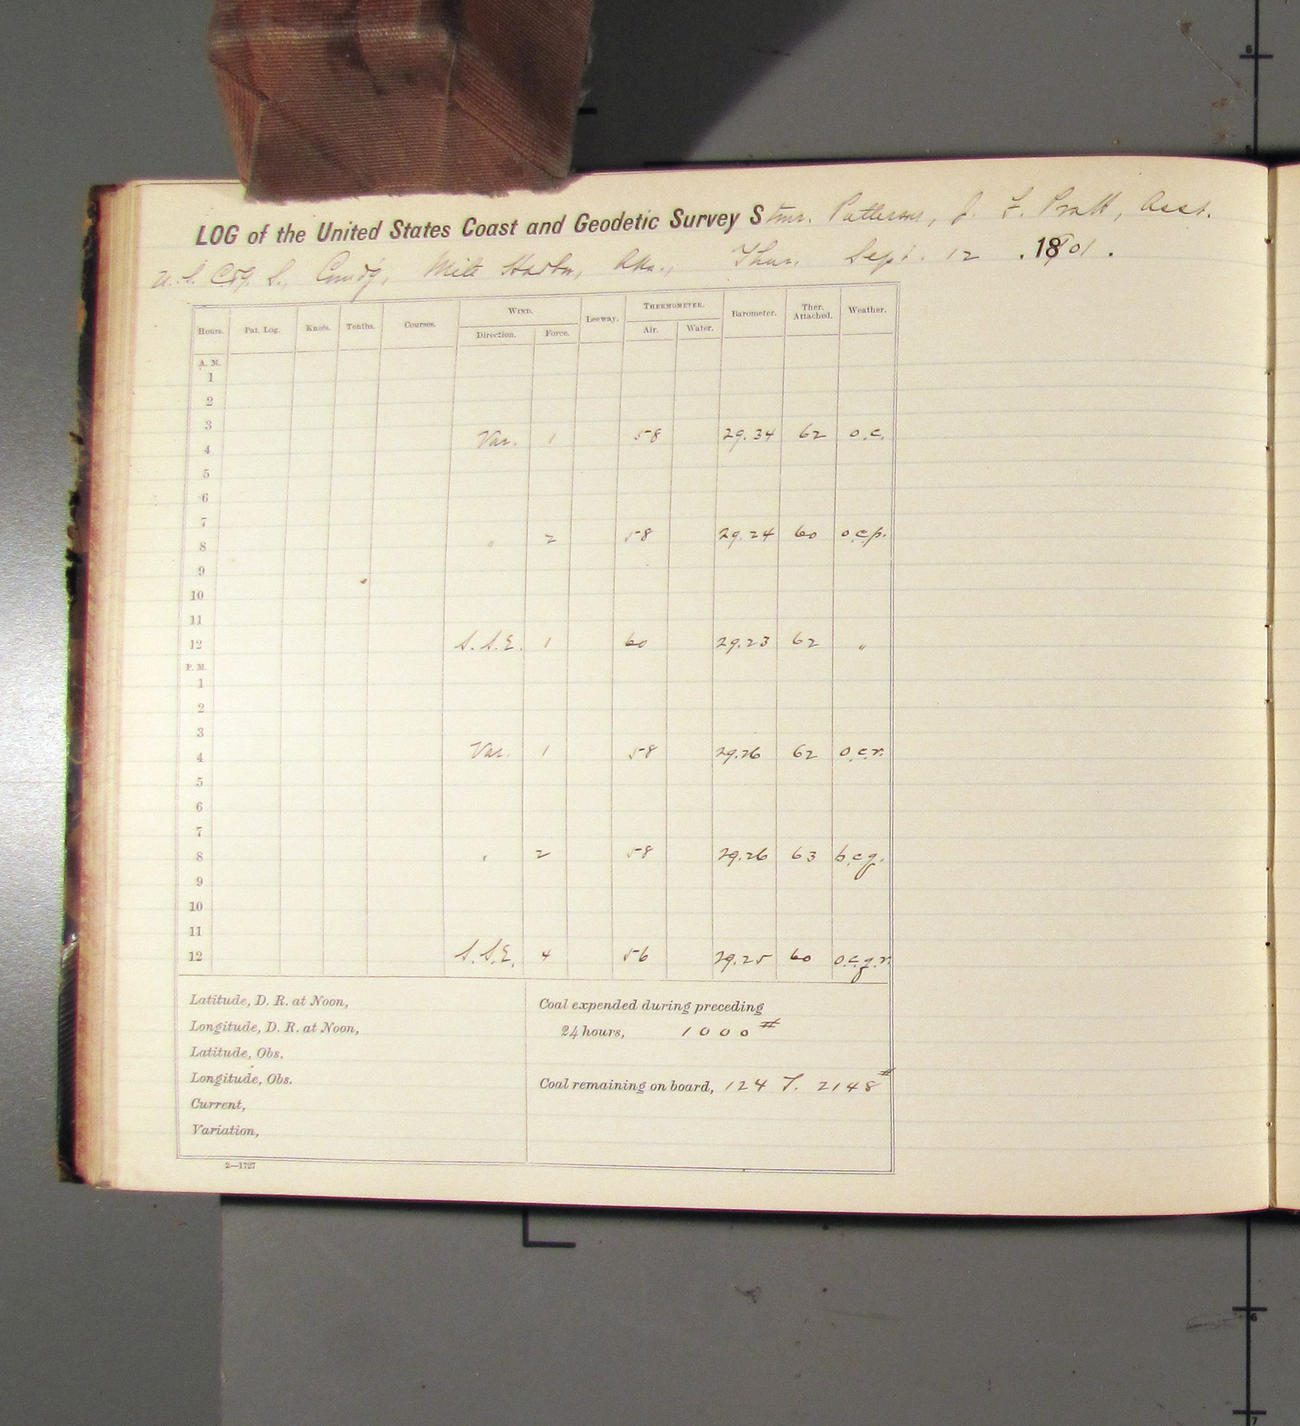 LOG of the United States Coast and Geodetic Survey Stmr. Patterson, J. F. Pratt, Asst.
U. S. C & G. S., Comd'g, Harbor, Thur. Sept. 12 . 1901 .
Hours. Pat. Log. Knots. Tenths. Courses. WIND. Direction. Force. Leeway. THERMOMETER. Air. Water. Barometer. Ther. Attached. Weather.
A. M.
1
2
3
4 Var. 1 58 29.34 62 o.c.
5
6
7
8 " 2 58 29.24 60 o.c.p.
9
10
11
12 S.S.E. 1 60 29.23 62 "
P. M.
1
2
3
4 Var. 1 58 29.26 62 o.c.r.
5
6
7
8 " 2 58 29.26 63 b.c.q.
9
10
11
12 S.S.E. 4 56 29.25 60 o.c.q.r.
Latitude, D. R. at Noon,
Longitude, D. R. at Noon,
Latitude, Obs.
Longitude, Obs.
Current,
Variation,
Coal expended during preceding
24 hours, 1000 #
Coal remaining on board, 124 T. 2148 #
2—1727
6
6
7